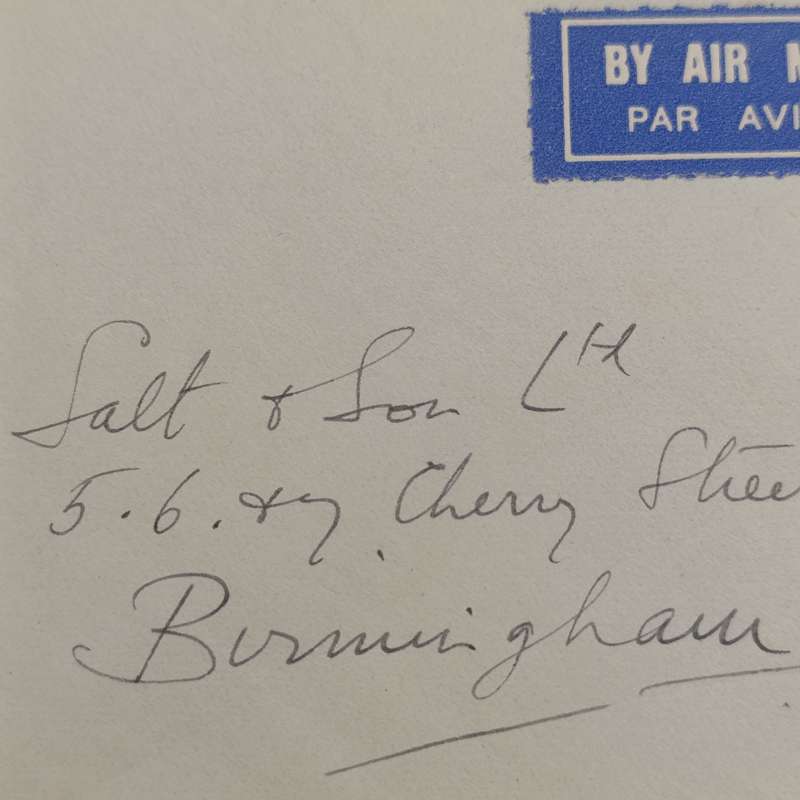 BY AIR M
PAR AVI
Salt & Son Ltd
5. 6. & 7. Cherry Stree
Birmingham